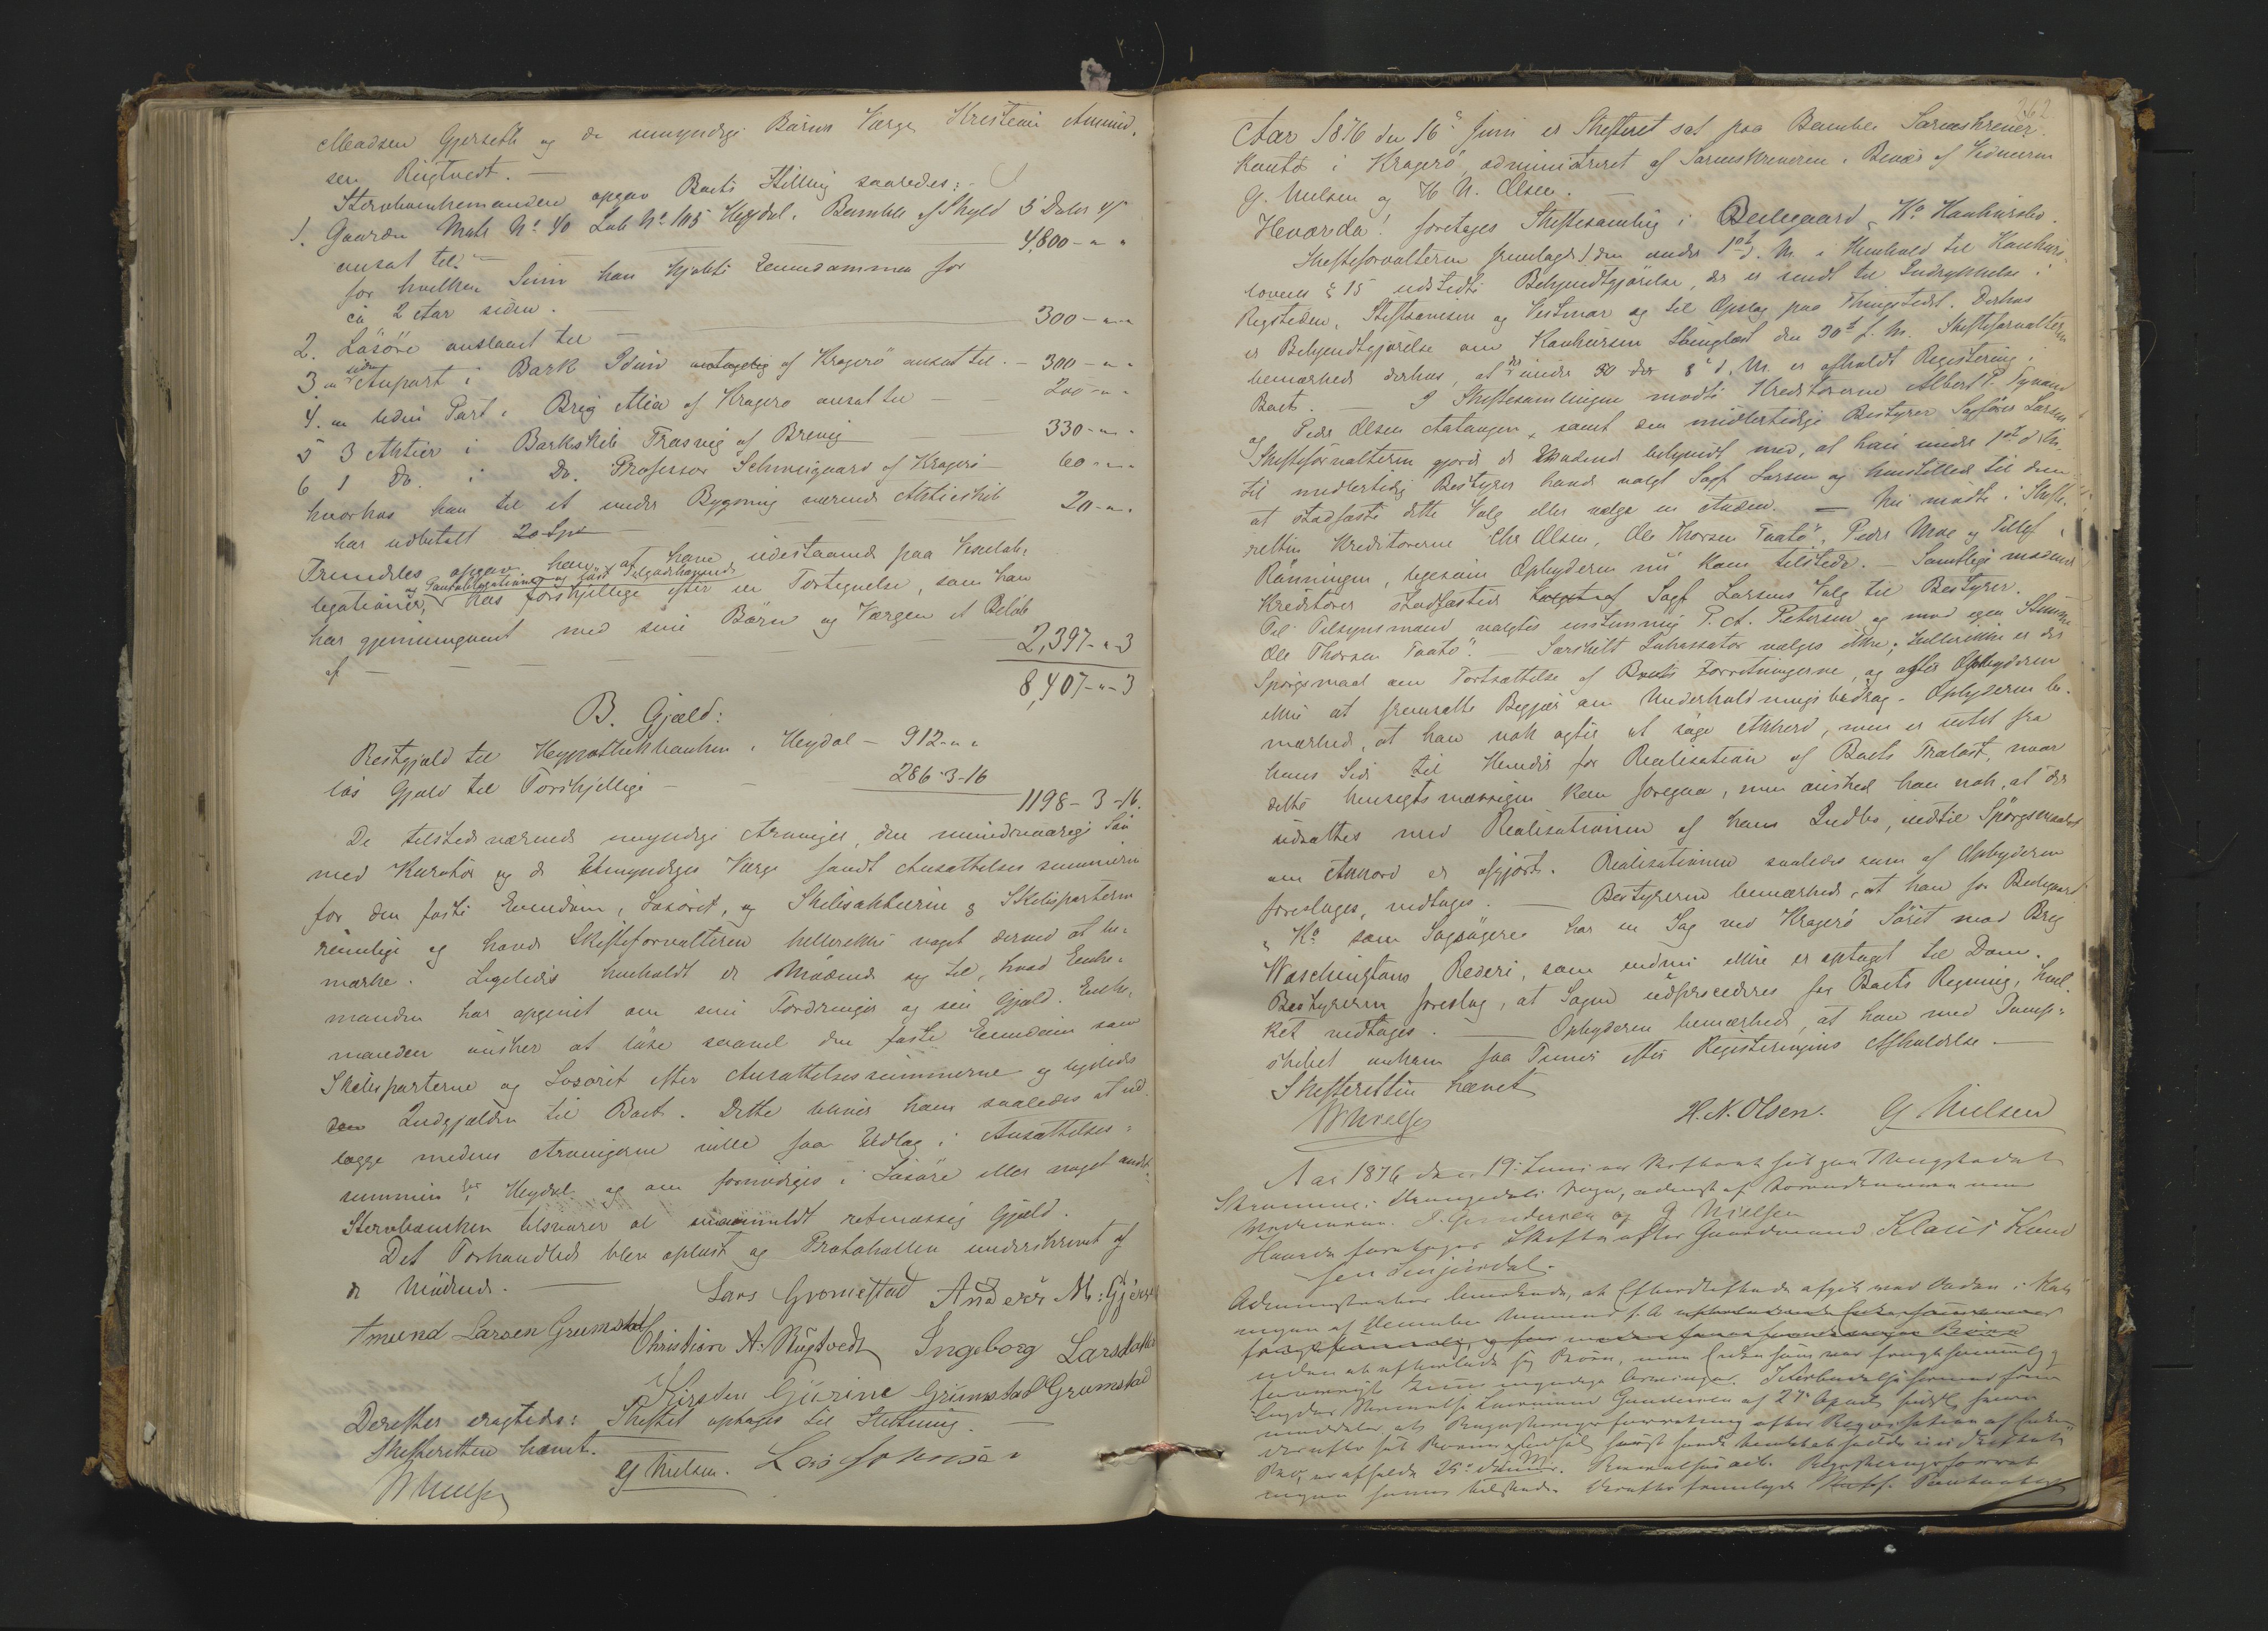 Madsen Gjerseth og de umyndige Børns Værge Kristen Amund-
sen Rugtvedt. —
Stervboenkemanden opgav Boets Stilling saaledes:
1. Gaarden Matr. No. 40 Løb No. 105 Heydal i Bamble af Skyld 5 Daler
ansat til — 4,800 - " "
for hvilken Sum han kjøbte Eiendommen for
ca 2 Aar siden.
2. Løsøre anslaaet til — 300 - " "
3. en liden Anpart i Bark Idun af Kragerø ansat til — 300 - " "
4. en liden Part i Brig Alia af Kragerø ansat til — 200 - " "
5 3 Aktier i Barkskib Frasvig af Brevig — 330 - " "
6 1 Do. i Do. Professor Schweigaard af Kragerø — 60 - " "
hvorhos han til et under Bygning værende Aktieskib
har udbetalt 20 Spd — 20 - " "
Fremdeles opgav han at have udestaaende paa Vexelob-
og Pantobligationer og løst Tilgodehavende
ligationer, hos forskjellige efter en Fortegnelse, som han
har gjennemgaaet med sine Børn og Værgen et Beløb
af — 2,397 - " 3
8,407 - " - 3
B. Gjæld:
Restgjæld til Hypothekbanken i Heydal — 912 - " "
løs Gjæld til Forskjellige — 286 - 3 - 16
1198 - 3 - 16.
De tilstedeværende myndige Arvinger, den mindreaarige Søn
med Kurator og de Umyndiges Værge fandt Ansættelsessummerne
for den faste Eiendom, Løsøret, og Skibsaktierne & Skibsparterne
rimelige og havde Skifteforvalteren hellerikke noget dermed at be-
mærke. Ligeledes henholdt de Mødende sig til, hvad Enke-
manden har opgivet om sine Fordringer og sin Gjæld. Enke-
manden ønsker at løse saavel den faste Eiendom som
Skibsparterne og Løsøret efter Ansættelsessummerne og ligeledes
Indgjælden til Boet. Dette bliver ham saaledes at ud-
lægge medens Arvingerne ville faa Udlæg i Ansættelses-
summen for Heydal og om fornødiges i Løsøre eller noget andet.
Stervboenken tilsvarer al uanmeldt retmæssig Gjæld.
Det Forhandlede blev oplæst og Protokollen underskrevet af
de Mødende. —
Lars Gromstad Anders M: Gjerse
Amund Larsen Grumstad Christian A. Rugtvedt Ingeborg Larsdatter
Kirsten Gurine Grumstad Grumstad
Derefter eragtedes: Skiftet optages til Slutning. —
Skifteretten hævet.
G Nielsen. Lars Johnsen
362
Aar 1876 den 16de Juni er Skifteret sat paa Bamble Sorenskriver-
kontor i Kragerø, administreret af Sorenskriveren i Bivær af Vidnerne
G. Nielsen og H N. Olsen.
Hvorda! foretages Skiftesamling i Beilegaard & Ko Konkursbo.
Skifteforvalteren fremlagde den under 1ste d. M. i Henhold til Konkurs-
lovens § 15 udstedte Bekjendtgjørelse, der er sendt til Indrykkelse i
Rigstiden, Stiftsavisen og Vestmar og til Opslag paa Thingstedet. Derhos
er Bekjendtgjørelse om Konkursen thinglæst den 30te f. M. Skifteforvalteren
bemærkede derhos, at der under 8de d. M. er afholdt Registrering i
Boet. — I Skiftesamlingen mødte Kreditorerne Albert P. Tynæs
og Peder Olsen Aatangen, samt den midlertidige Bestyrer Sagfører Larsen
Skifteforvalteren gjorde de Mødende bekjendt med, at han under 1ste d. M.
til midlertidig Bestyrer havde valgt Sagf. Larsen og henstillede til dem
at stadfæste dette Valg eller vælge en Anden. — Nu mødte i Skifte-
retten Kreditorerne Chr Olsen, Ole Thorsen Taatø, Peder Moe og Tellef
Rønningen, ligesom Opbyderen nu kom tilstede. — Samtlige mødende
Kreditorer stadfæstede Sagf Larsens Valg til Bestyrer.
Til Tilsynsmænd valgtes enstemmig P. A. Petersen og mod egen Stemme
Ole Thorsen Taatø. — Særskilt Inkassator vælges ikke; hellerikke er der
Spørgsmaal om Fortsættelse af Boets Forretningerne, og agter Opbyderen
ikke at fremsætte Begjær om Underholdningsbidrag. Opbyderen be-
mærkede, at han nok agter at søge Akkord, men er intet fra
hans Side til Hinder for Realisation af Boets Trælast, naar
dette hensigtsmæssigen kan foregaa, men ønskede han nok, at der
udsættes med Realisationen af hans Indbo, indtil Spørgsmaalet
om Akkord er afgjort. Realisationen saaledes som af Opbyderen
foreslaaes, vedtages. — Bestyreren bemærkede, at han for Beilegaard
& Ko som Sagsøgere har en Sag ved Kragerø Søret mod Brig
Waschingtons Rederi, som endnu ikke er optaget til Dom.
Bestyreren foreslog, at Sagen udprocederes for Boets Regning, hvil-
ket vedtages. — Opbyderen bemærkede, at han med Damp-
skibet ankom fra Tunis efter Registeringens Afholdelse. —
Skifteretten hævet
H. N. Olsen. G. Nielsen
Aar 1876 den 19: Juni var Skifteret sat paa Thingstedet
Strømme i Drangedals Sogn, administ af Sorenskriveren med
Vidnerne. J. Gundersen og G Nielsen
Hvorda foretoges Skifte efter Gaardmand Klaus Knud
sen